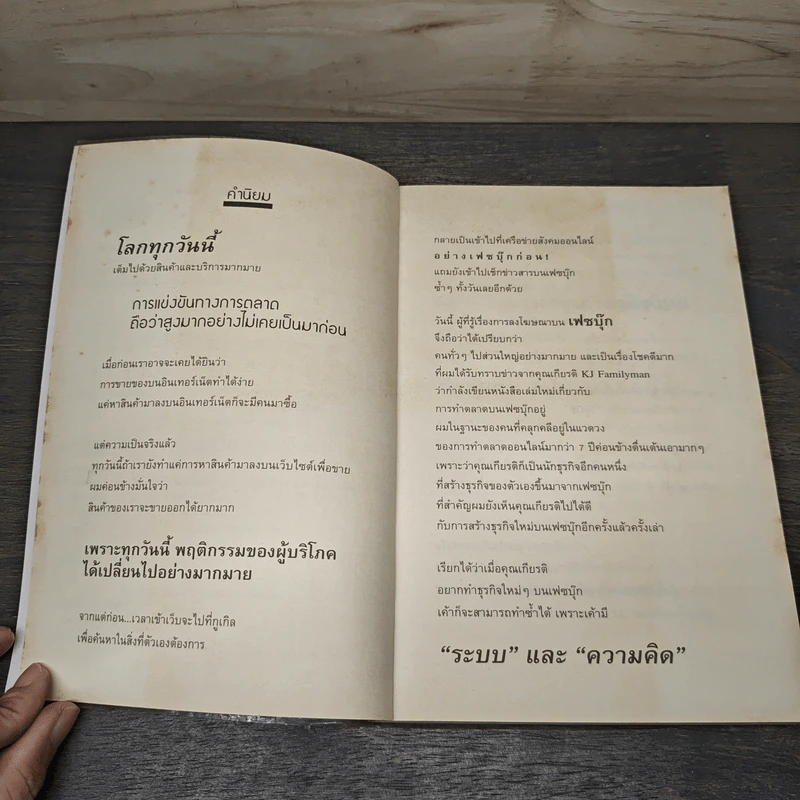 คำนิยม
โลกทุกวันนี้
เต็มไปด้วยสินค้าและบริการมากมาย
การแข่งขันทางการตลาด
ถือว่าสูงมากอย่างไม่เคยเป็นมาก่อน
เมื่อก่อนเราอาจจะเคยได้ยินว่า
การขายของบนอินเทอร์เน็ตทำได้ง่าย
แค่หาสินค้ามาลงบนอินเทอร์เน็ตก็จะมีคนมาซื้อ
แต่ความเป็นจริงแล้ว
ทุกวันนี้ถ้าเรายังทำแค่การหาสินค้ามาลงบนเว็บไซต์เพื่อขาย
ผมค่อนข้างมั่นใจว่า
สินค้าของเราจะขายออกได้ยากมาก
เพราะทุกวันนี้ พฤติกรรมของผู้บริโภค
ได้เปลี่ยนไปอย่างมากมาย
จากแต่ก่อน...เวลาเข้าเว็บจะไปที่กูเกิล
เพื่อค้นหาในสิ่งที่ตัวเองต้องการ
กลายเป็นเข้าไปที่เครือข่ายสังคมออนไลน์
อย่างเฟซบุ๊กก่อน!
แถมยังเข้าไปเช็กข่าวสารบนเฟซบุ๊ก
ซ้ำๆ ทั้งวันเลยอีกด้วย
วันนี้ ผู้ที่รู้เรื่องการลงโฆษณาบน เฟซบุ๊ก
จึงถือว่าได้เปรียบกว่า
คนทั่วๆ ไปส่วนใหญ่อย่างมากมาย และเป็นเรื่องโชคดีมาก
ที่ผมได้รับทราบข่าวจากคุณเกียรติ KJ Familyman
ว่ากำลังเขียนหนังสือเล่มใหม่เกี่ยวกับ
การทำตลาดบนเฟซบุ๊กอยู่
ผมในฐานะของคนที่คลุกคลีอยู่ในแวดวง
ของการทำตลาดออนไลน์มากว่า 7 ปีค่อนข้างตื่นเต้นเอามากๆ
เพราะว่าคุณเกียรติก็เป็นนักธุรกิจอีกคนหนึ่ง
ที่สร้างธุรกิจของตัวเองขึ้นมาจากเฟซบุ๊ก
ที่สำคัญผมยังเห็นคุณเกียรติไปได้ดี
กับการสร้างธุรกิจใหม่บนเฟซบุ๊กอีกครั้งแล้วครั้งเล่า
เรียกได้ว่าเมื่อคุณเกียรติ
อยากทำธุรกิจใหม่ๆ บนเฟซบุ๊ก
เค้าก็จะสามารถทำซ้ำได้ เพราะเค้ามี
“ระบบ” และ “ความคิด”